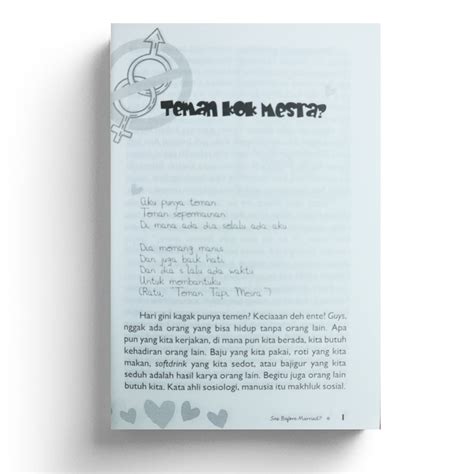 Teman kok Mesra?
Aku punya teman
Teman sepermainan
Di mana ada dia selalu ada aku
Dia memang manis
Dan juga baik hati
Dan dia s'lalu ada waktu
Untuk membantuku
(Ratu, "Teman Tapi Mesra")
Hari gini kagak punya temen? Keciaaan deh ente! Guys,
nggak ada orang yang bisa hidup tanpa orang lain. Apa
pun yang kita kerjakan, di mana pun kita berada, kita butuh
kehadiran orang lain. Baju yang kita pakai, roti yang kita
makan, softdrink yang kita sedot, atau bajigur yang kita
seduh adalah hasil karya orang lain. Begitu juga orang lain
butuh kita. Kata ahli sosiologi, manusia itu makhluk sosial.
Sex Before Married? 1